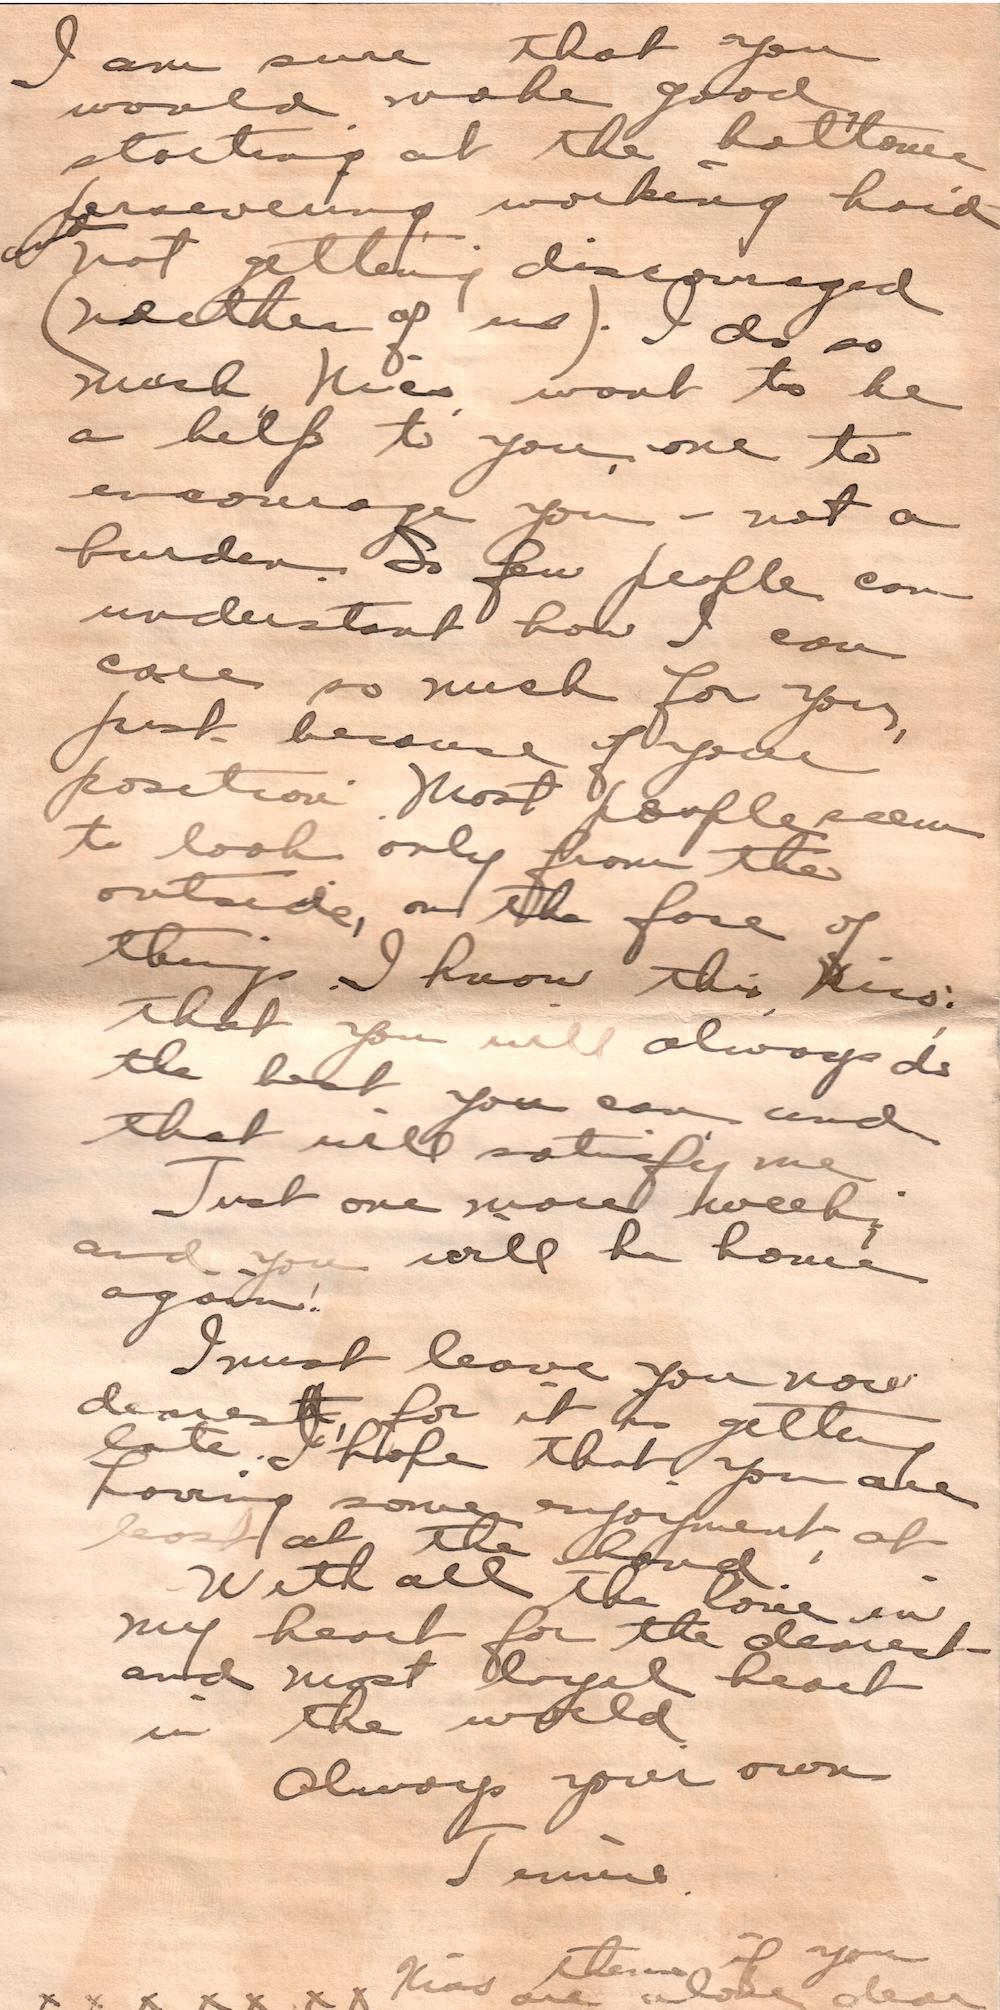 I am sure that you
would make good
starting at the bottom
persevering, working hard
and not getting discouraged
(neither of us). I do so
much, Kiss, want to be
a help to you, one to
encourage you - not a
burden. So few people can
understant how I can
care so much for you,
just because of your
position. Most people seem
to look only from the
outside, on the face of
things. I know this, Kiss;
that you will always do
the best you can, and
that will satisfy me
Just one more week;
and you will be home
again!
I must leave you now
dearest, for it is getting
late. I hope that you are
having some enjoyment, at
least, at the
With all the love in
my heart for the dearest
and most loyal heart
in the world
Always your own
Tennie.
Kiss them if you
x x x x x x x are alone dear